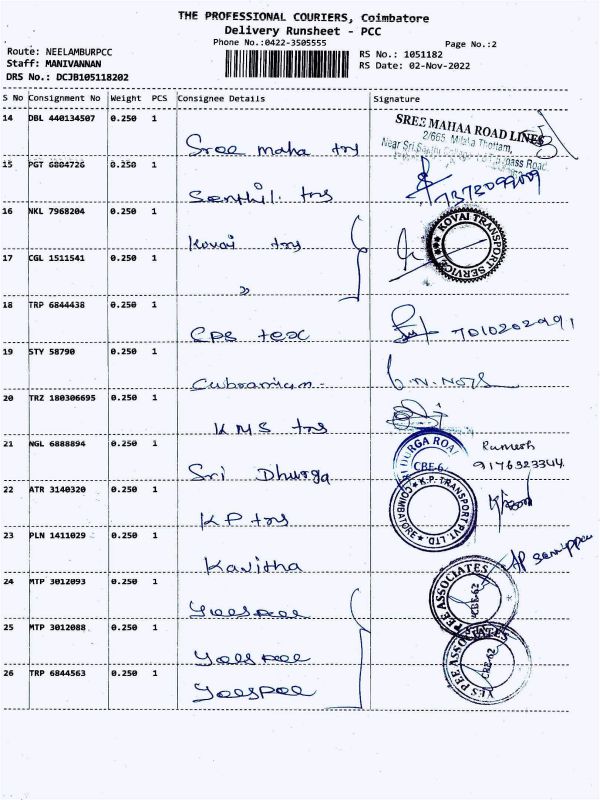 THE PROFESSIONAL COURIERS, Coimbatore
Delivery Runsheet - PCC
Phone No.:0422-3505555
Page No.:2
Route: NEELAMBURPCC
Staff: MANIVANNAN
DRS No.: DCJB105118202
RS No.: 1051182
RS Date: 02-Nov-2022
S No Consignment No Weight PCS Consignee Details Signature
14 DBL 440134507 0.250 1
SREE MAHAA ROAD LINES
2/665,
Sree maha trs
15 PGT 6804726 0.250 1
Senthil trs
16 NKL 7968204 0.250 1
Kovai trs
KOVAI TRANSPORT SERVICE
17 CGL 1511541 0.250 1
"
18 TRP 6844438 0.250 1
CPS tex
19 STY 58790 0.250 1
Cubramian
20 TRZ 180306695 0.250 1
KMS trs
21 NGL 6888894 0.250 1
Sri Dhurga
DURGA ROA
CBE-6
Ramesh
9176323344
22 ATR 3140320 0.250 1
KP trs
K.P. TRANSPORT PVT. LTD.
COIMBATORE
23 PLN 1411029 0.250 1
Kavitha
24 MTP 3012093 0.250 1
Yeespee
PEE ASSOCIATES
CBE-62
25 MTP 3012088 0.250 1
Yeespee
YES PEE ASSOCIATES
CBE-62
26 TRP 6844563 0.250 1
Yeespee